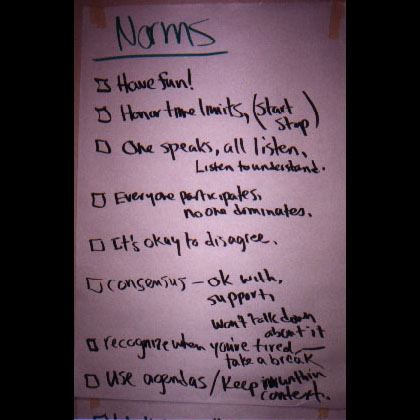 Norms
Have fun!
Honor time limits, (Start
Stop)
One speaks, all listen,
Listen to understand.
Everyone participates,
no one dominates.
It's okay to disagree.
Consensus - ok with,
support,
won't talk down
about it
recognize when you're tired, —
take a break
Use agendas / Keep within
context.